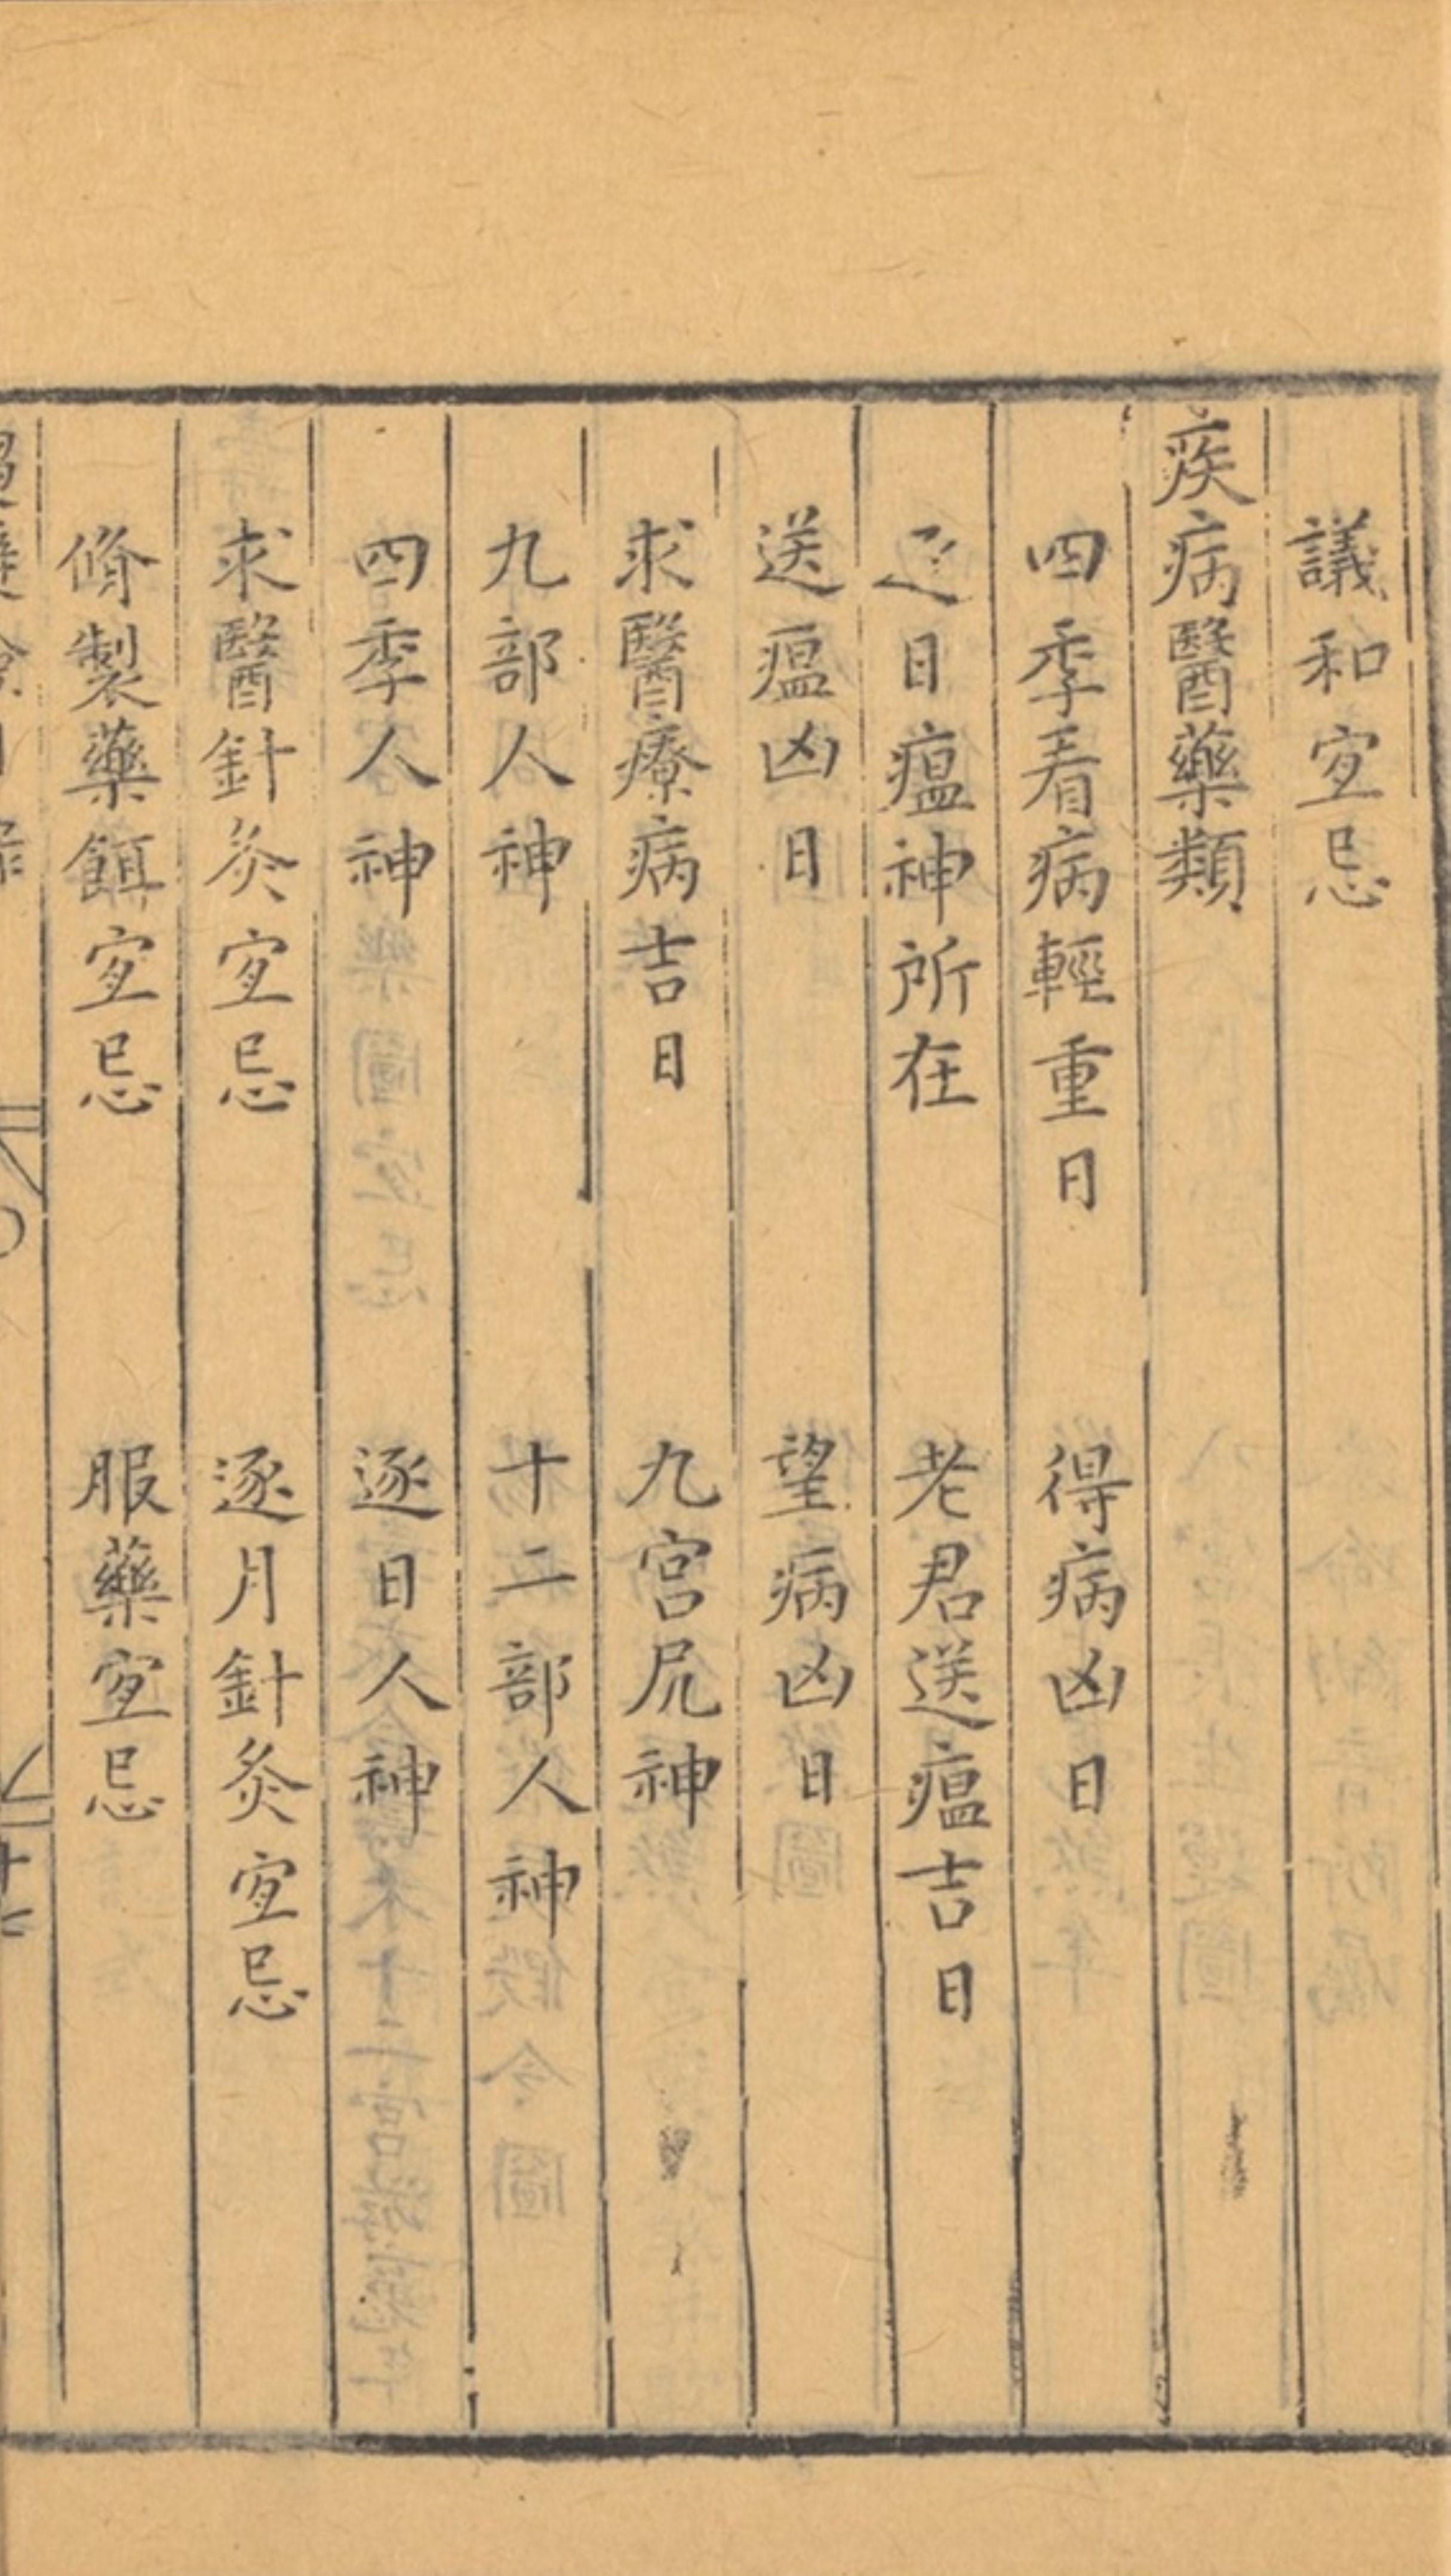 議和宜忌
疾病醫藥類
四季看病輕重日　得病凶日
日瘟神所在　老君送瘟吉日
送瘟凶日　望病凶日
求醫療病吉日　九宮尻神
九部人神　十二部人神
四季人神　逐日人神
求醫針灸宜忌　逐月針灸宜忌
脩製藥餌宜忌　服藥宜忌